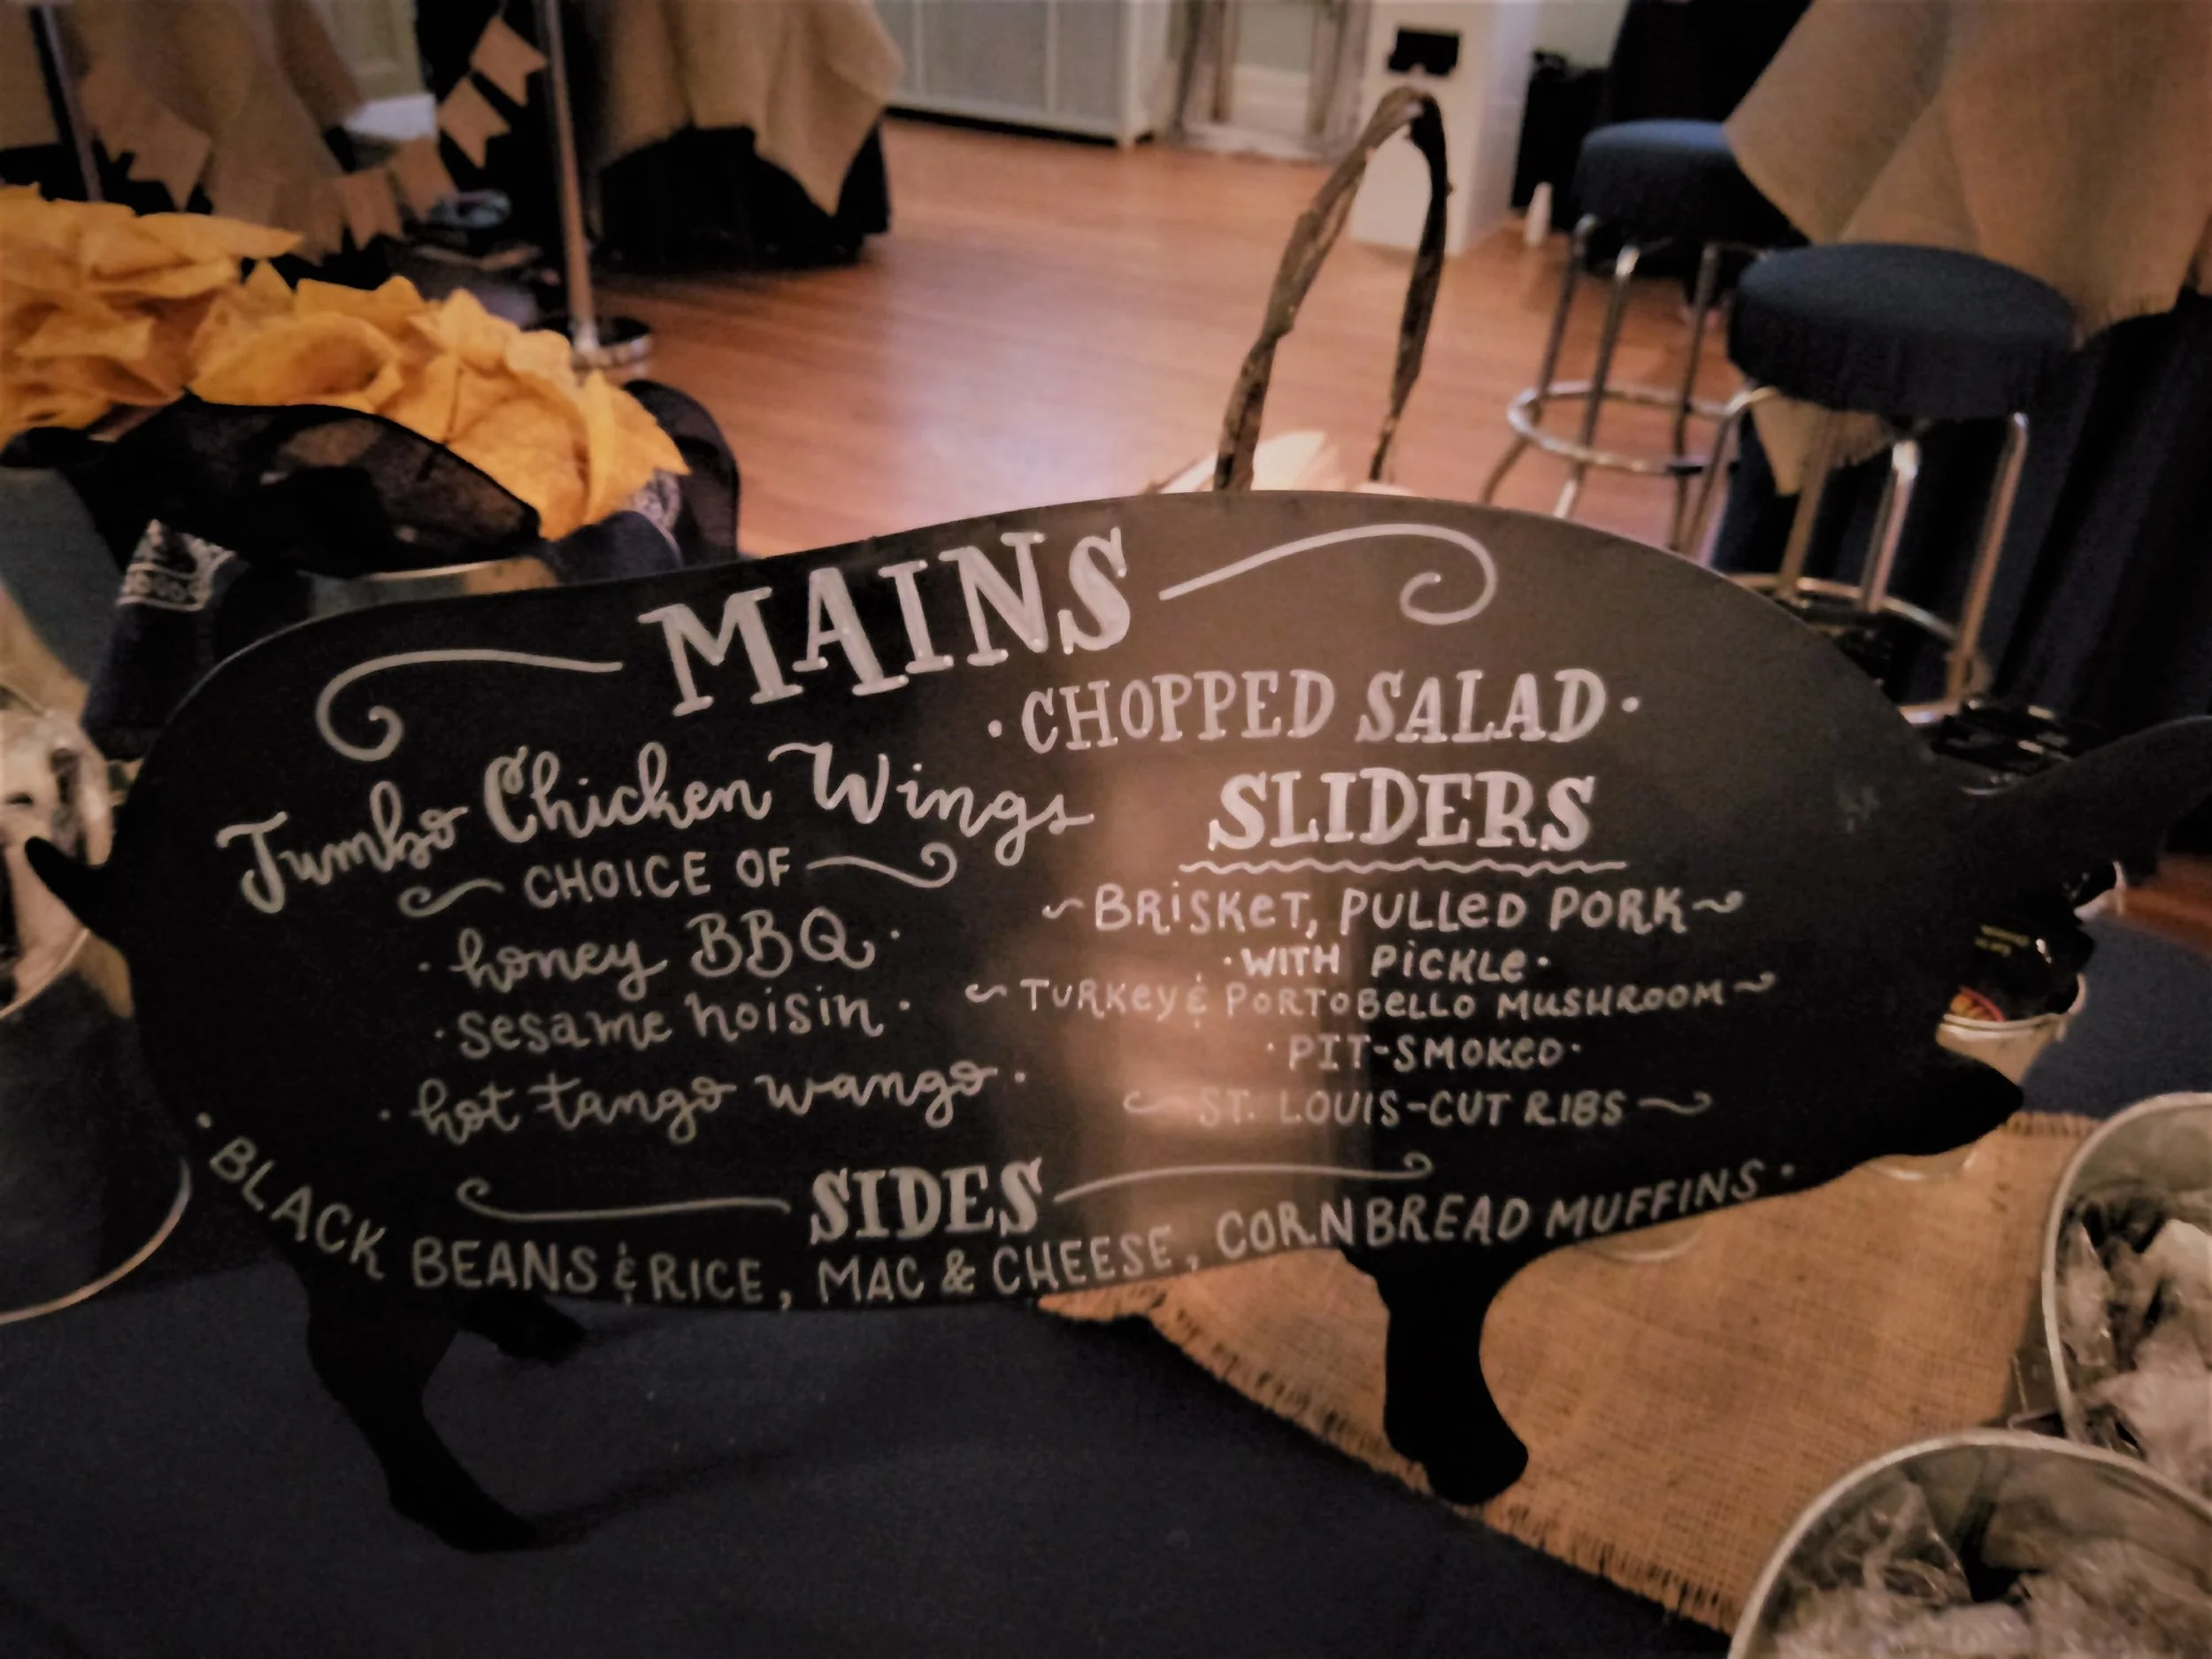 MAINS
Jumbo Chicken Wings
CHOICE OF
· honey BBQ ·
· sesame hoisin ·
· hot tango wango ·
· CHOPPED SALAD ·
SLIDERS
~BRiSKeT, PULLeD PORK~
· WITH PiCKLe ·
~TURKey & PORTOBeLLO MUSHROOM~
· PIT-SMOKeD ·
~ST. LOUIS-CUT RIBS~
SIDES
· BLACK BEANS & RICE, MAC & CHEESE, CORNBREAD MUFFINS ·